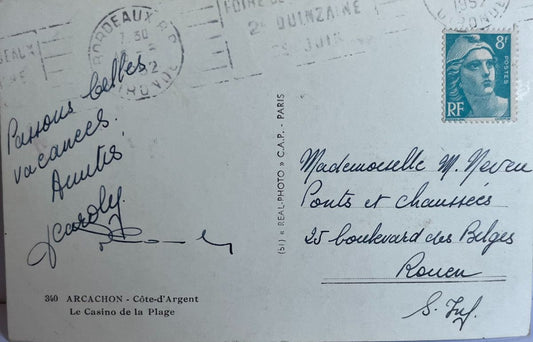 BORDEAUX R.P.
7 30
52
GIRONDE
FOIRE DE
2e QUINZAINE
JUIN
1952
8F
POSTES
RF
Passons belles
vacances.
Amitiés
Mademoiselle M. Neveu
Ponts et chaussées
25 boulevard des Belges
Rouen
S. Inf.
(51) « REAL-PHOTO » C.A.P. - PARIS
340 ARCACHON - Côte-d'Argent
Le Casino de la Plage